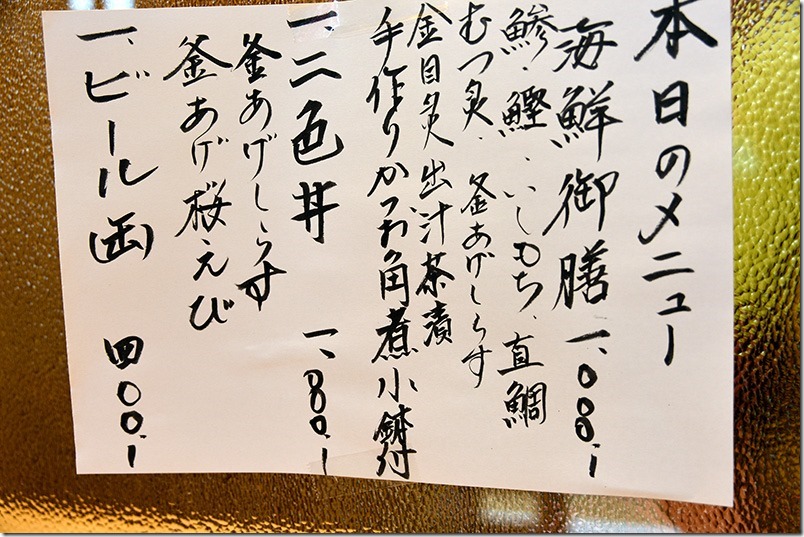 本日のメニュー
海鮮御膳 一、080.-
鯵・鰹・いしもち、真鯛
むつ炙、釜あげしらす
金目炙出汁茶漬
手作りかつお角煮小鉢付
一、二色丼 一、80.-
釜あげしらす
釜あげ桜えび
一、ビール(缶) 四00.-